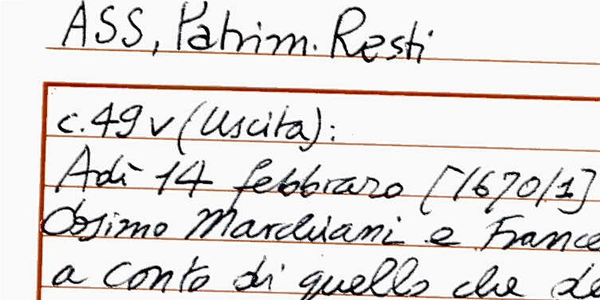 ASS, Patrim. Resti
c. 49 v (Uscita):
Adì 14 febbraro [1670/1]
Cosimo Marchiani e France
a conto di quello che de